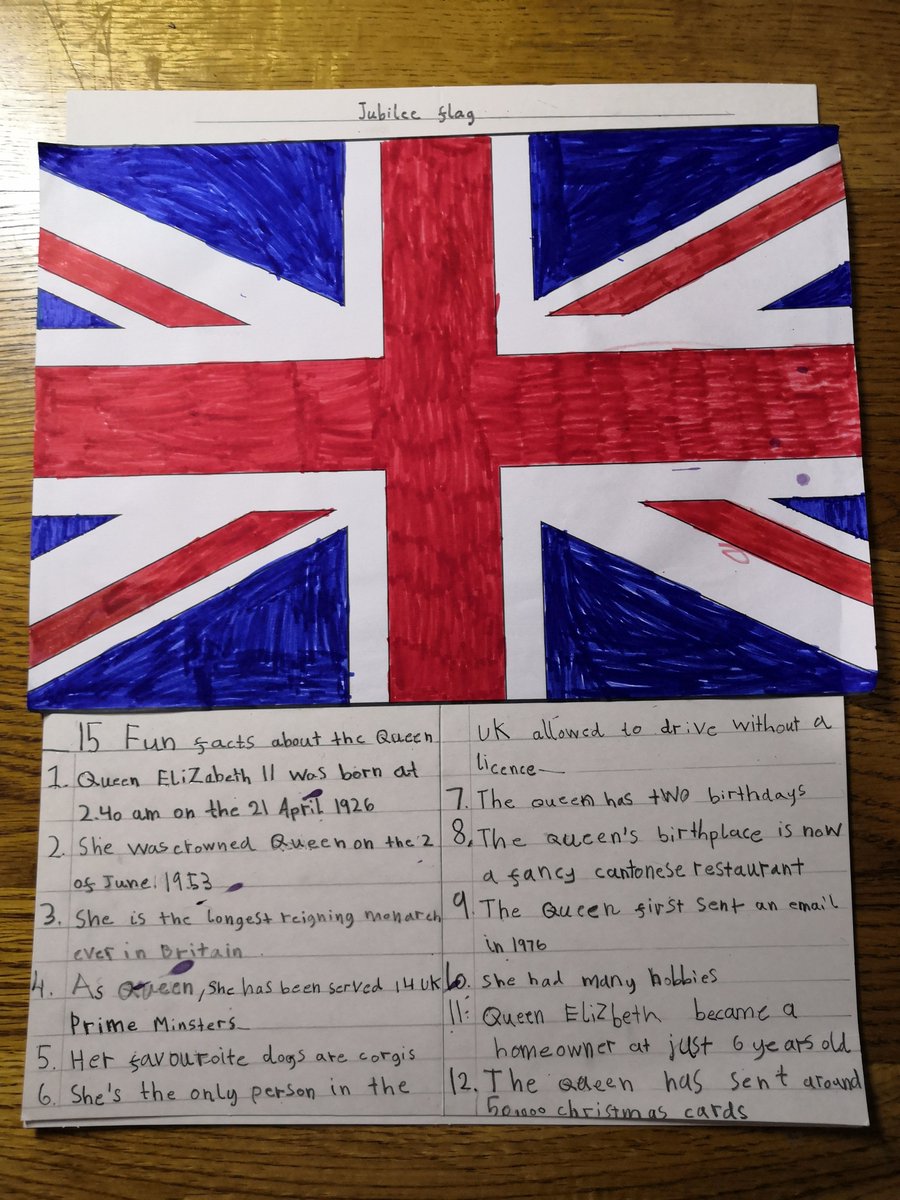 Jubilee flag
15 Fun facts about the Queen
1. Queen EliZabeth II was born at
2.40 am on the 21 April 1926
2. She was crowned Queen on the 2
of June 1953
3. She is the longest reigning monarch
ever in Britain
4. As Queen, She has been served 14 UK
Prime Minsters
5. Her favouroite dogs are corgis
6. She's the only person in the
UK allowed to drive without a
licence
7. The queen has two birthdays
8. The queen's birthplace is now
a fancy cantonese restaurant
9. The Queen first sent an email
in 1976
10. she had many hobbies
11. Queen EliZbeth became a
homeowner at just 6 years old
12. The queen has sent around
50,000 christmas cards